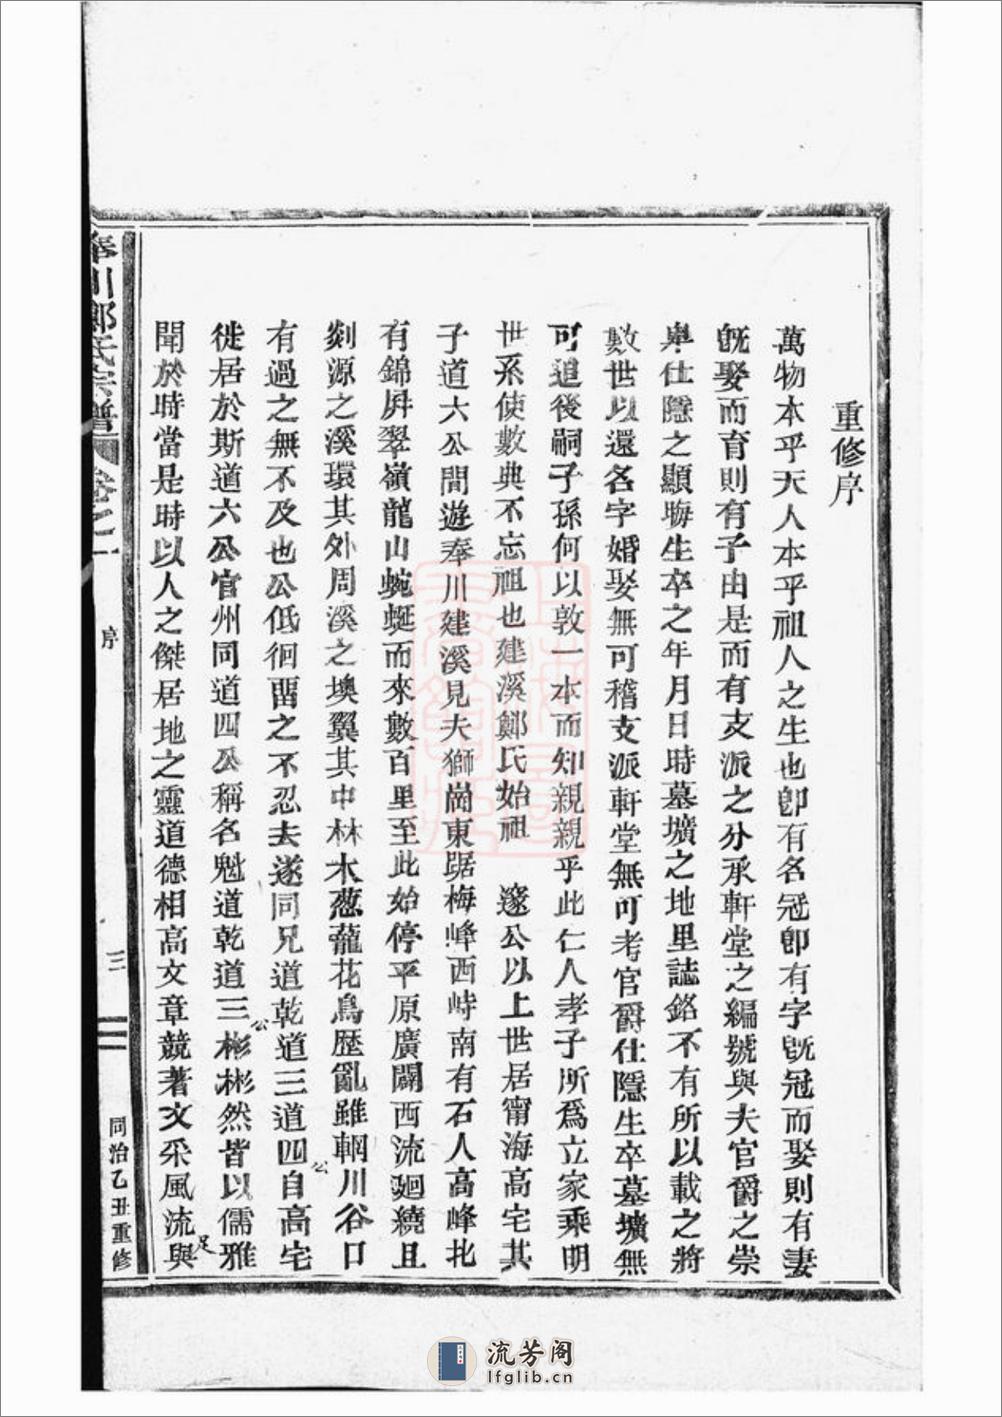 重修序
萬物本乎天人本乎祖人之生也卽有名冠卽有字旣冠而娶則有妻
旣娶而育則有子由是而有支派之分承軒堂之編號與夫官爵之崇
卑仕隱之顯晦生卒之年月日時墓壙之地里誌銘不有所以載之將
數世以還名字婚娶無可稽支派軒堂無可考官爵仕隱生卒墓壙無
可追後嗣子孫何以敦一本而知親親乎此仁人孝子所爲立家乘明
世系使數典不忘祖也建溪鄭氏始祖 邃公以上世居甯海高宅其
子道六公間遊奉川建溪見夫獅崗東踞梅峰西峙南有石人高峰北
有錦屛翠嶺龍山蜿蜒而來數百里至此始停平原廣闊西流迴繞且
剡源之溪環其外周溪之墺翼其中林木葱蘢花鳥歷亂雖輞川谷口
有過之無不及也公低徊畱之不忍去遂同兄道乾道三道四公自高宅
徙居於斯道六公官州同道四公稱名魁道乾道三公彬彬然皆以儒雅
聞於時當是時以人之傑居地之靈道德相高文章競著文采風流與足
奉川鄭氏宗譜 卷之一 序 三 同治乙丑重修
流芳阁
lfglib.cn